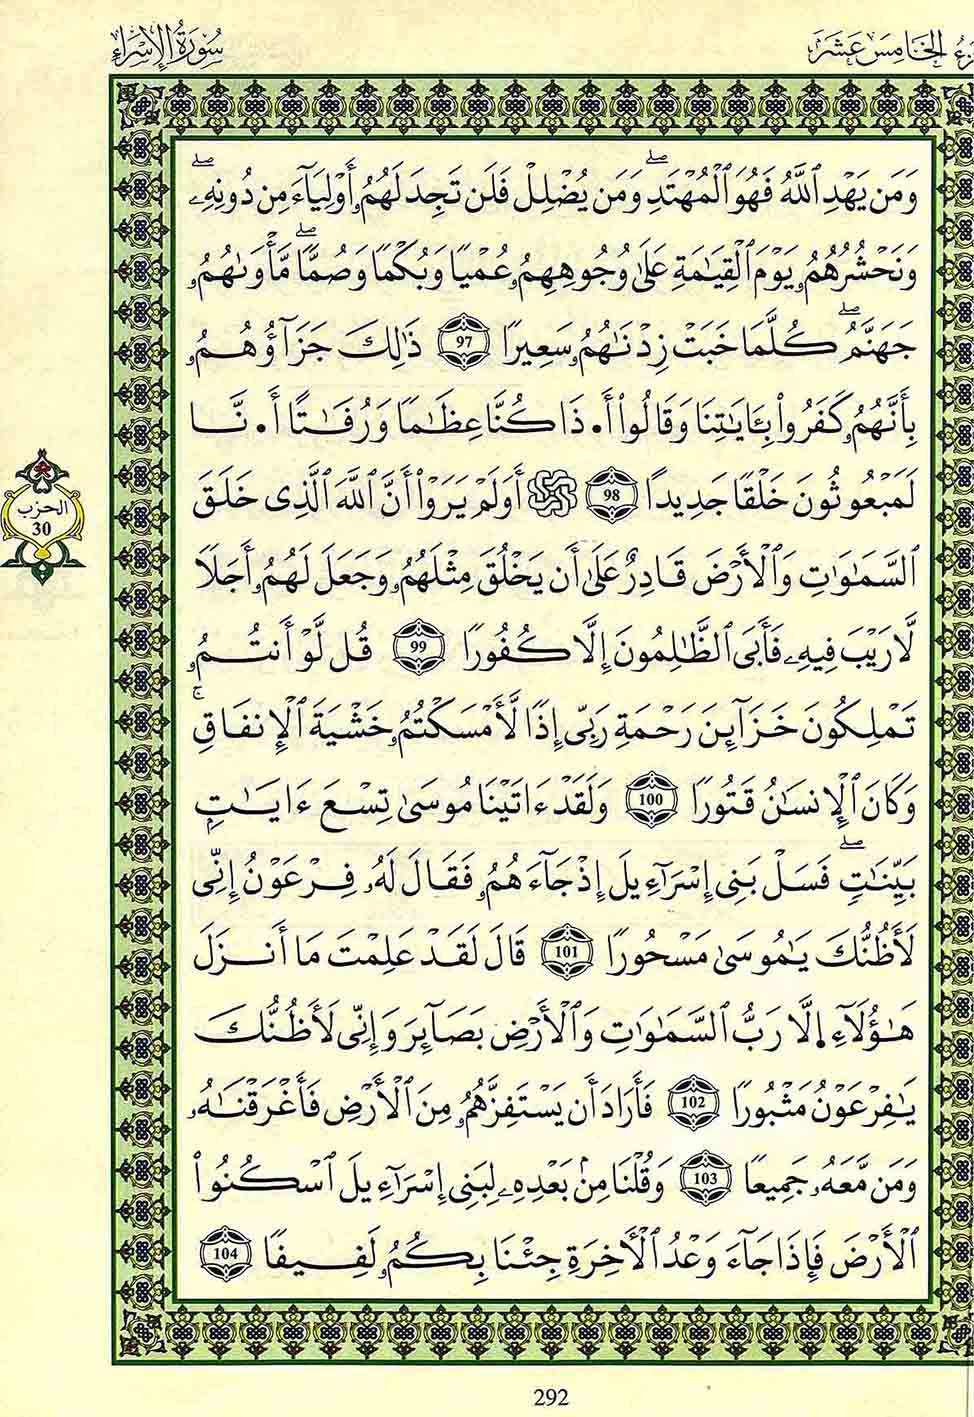 الجزء الخامس عشر
سورة الإسراء
وَمَن يَهْدِ ٱللَّهُ فَهُوَ ٱلْمُهْتَدِۖ وَمَن يُضْلِلْ فَلَن تَجِدَ لَهُمُۥٓ أَوْلِيَآءَ مِن دُونِهِۦۖ
وَنَحْشُرُهُمُۥ يَوْمَ ٱلْقِيَٰمَةِ عَلَىٰ وُجُوهِهِمُۥ عُمْيًا وَبُكْمًا وَصُمًّاۖ مَّأْوَىٰهُمُۥ
جَهَنَّمُۖ كُلَّمَا خَبَتْ زِدْنَٰهُمُۥ سَعِيرًا 97 ذَٰلِكَ جَزَآؤُهُمُۥ
بِأَنَّهُمُۥ كَفَرُوا۟ بِـَٔايَٰتِنَا وَقَالُوٓا۟ أَ.ذَا كُنَّا عِظَٰمًا وَرُفَٰتًا أَ.نَّا
لَمَبْعُوثُونَ خَلْقًا جَدِيدًا 98 أَوَلَمْ يَرَوْا۟ أَنَّ ٱللَّهَ ٱلَّذِى خَلَقَ
الحزب 30
ٱلسَّمَٰوَٰتِ وَٱلْأَرْضَ قَادِرٌ عَلَىٰٓ أَن يَخْلُقَ مِثْلَهُمُۥ وَجَعَلَ لَهُمُۥٓ أَجَلًا
لَّا رَيْبَ فِيهِۦ فَأَبَى ٱلظَّٰلِمُونَ إِلَّا كُفُورًا 99 قُل لَّوْ أَنتُمُۥ
تَمْلِكُونَ خَزَآئِنَ رَحْمَةِ رَبِّى إِذًا لَّأَمْسَكْتُمُۥ خَشْيَةَ ٱلْإِنفَاقِۚ
وَكَانَ ٱلْإِنسَٰنُ قَتُورًا 100 وَلَقَدْ ءَاتَيْنَا مُوسَىٰ تِسْعَ ءَايَٰتٍۭ
بَيِّنَٰتٍۖ فَسَلْ بَنِىٓ إِسْرَآءِيلَ إِذْ جَآءَهُمُۥ فَقَالَ لَهُۥ فِرْعَوْنُ إِنِّى
لَأَظُنُّكَ يَٰمُوسَىٰ مَسْحُورًا 101 قَالَ لَقَدْ عَلِمْتَ مَآ أَنزَلَ
هَٰٓؤُلَآءِ إِلَّا رَبُّ ٱلسَّمَٰوَٰتِ وَٱلْأَرْضِ بَصَآئِرَ وَإِنِّى لَأَظُنُّكَ
يَٰفِرْعَوْنُ مَثْبُورًا 102 فَأَرَادَ أَن يَسْتَفِزَّهُمُۥ مِنَ ٱلْأَرْضِ فَأَغْرَقْنَٰهُۥ
وَمَن مَّعَهُۥ جَمِيعًا 103 وَقُلْنَا مِنۢ بَعْدِهِۦ لِبَنِىٓ إِسْرَآءِيلَ ٱسْكُنُوا۟
ٱلْأَرْضَ فَإِذَا جَآءَ وَعْدُ ٱلْأَخِرَةِ جِئْنَا بِكُمُۥ لَفِيفًا 104
292